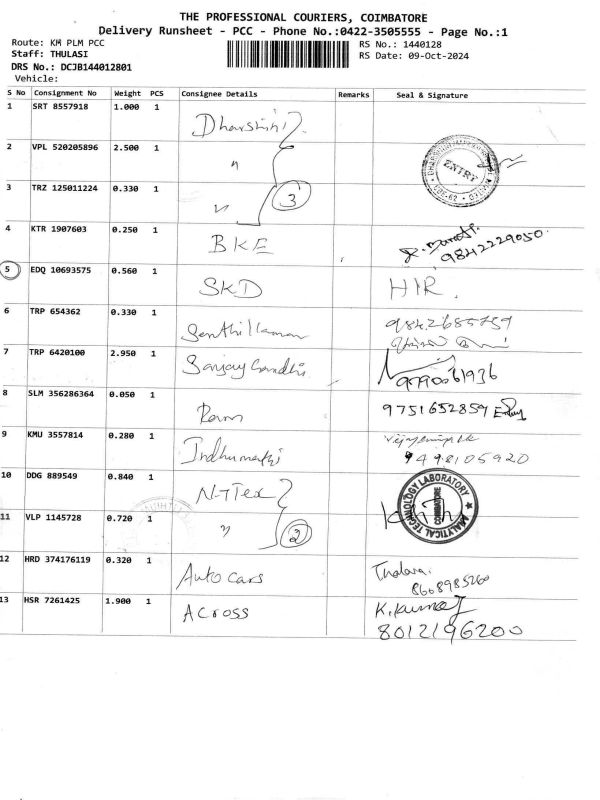 THE PROFESSIONAL COURIERS, COIMBATORE
Delivery Runsheet - PCC - Phone No.:0422-3505555 - Page No.:1
Route: KM PLM PCC
Staff: THULASI
DRS No.: DCJB144012801
Vehicle:
RS No.: 1440128
RS Date: 09-Oct-2024
S No Consignment No Weight PCS Consignee Details Remarks Seal & Signature
1 SRT 8557918 1.000 1 Dharshini
2 VPL 520205896 2.500 1 " ENTRY
3 TRZ 125011224 0.330 1 " 3
4 KTR 1907603 0.250 1 BKE 9842229050
5 EDQ 10693575 0.560 1 SKD HIR.
6 TRP 654362 0.330 1 Senthil 9842685759
7 TRP 6420100 2.950 1 Sanjay Gandhi 9790061936
8 SLM 356286364 0.050 1 Ram 9751652859
9 KMU 3557814 0.280 1 Indhumathi 9498105920
10 DDG 889549 0.840 1 N-Tex ANALYTICAL TECHNOLOGY LABORATORY COIMBATORE
11 VLP 1145728 0.720 1 " 2
12 HRD 374176119 0.320 1 Auto cars 8608985260
13 HSR 7261425 1.900 1 Across K. Kumar
8012196200